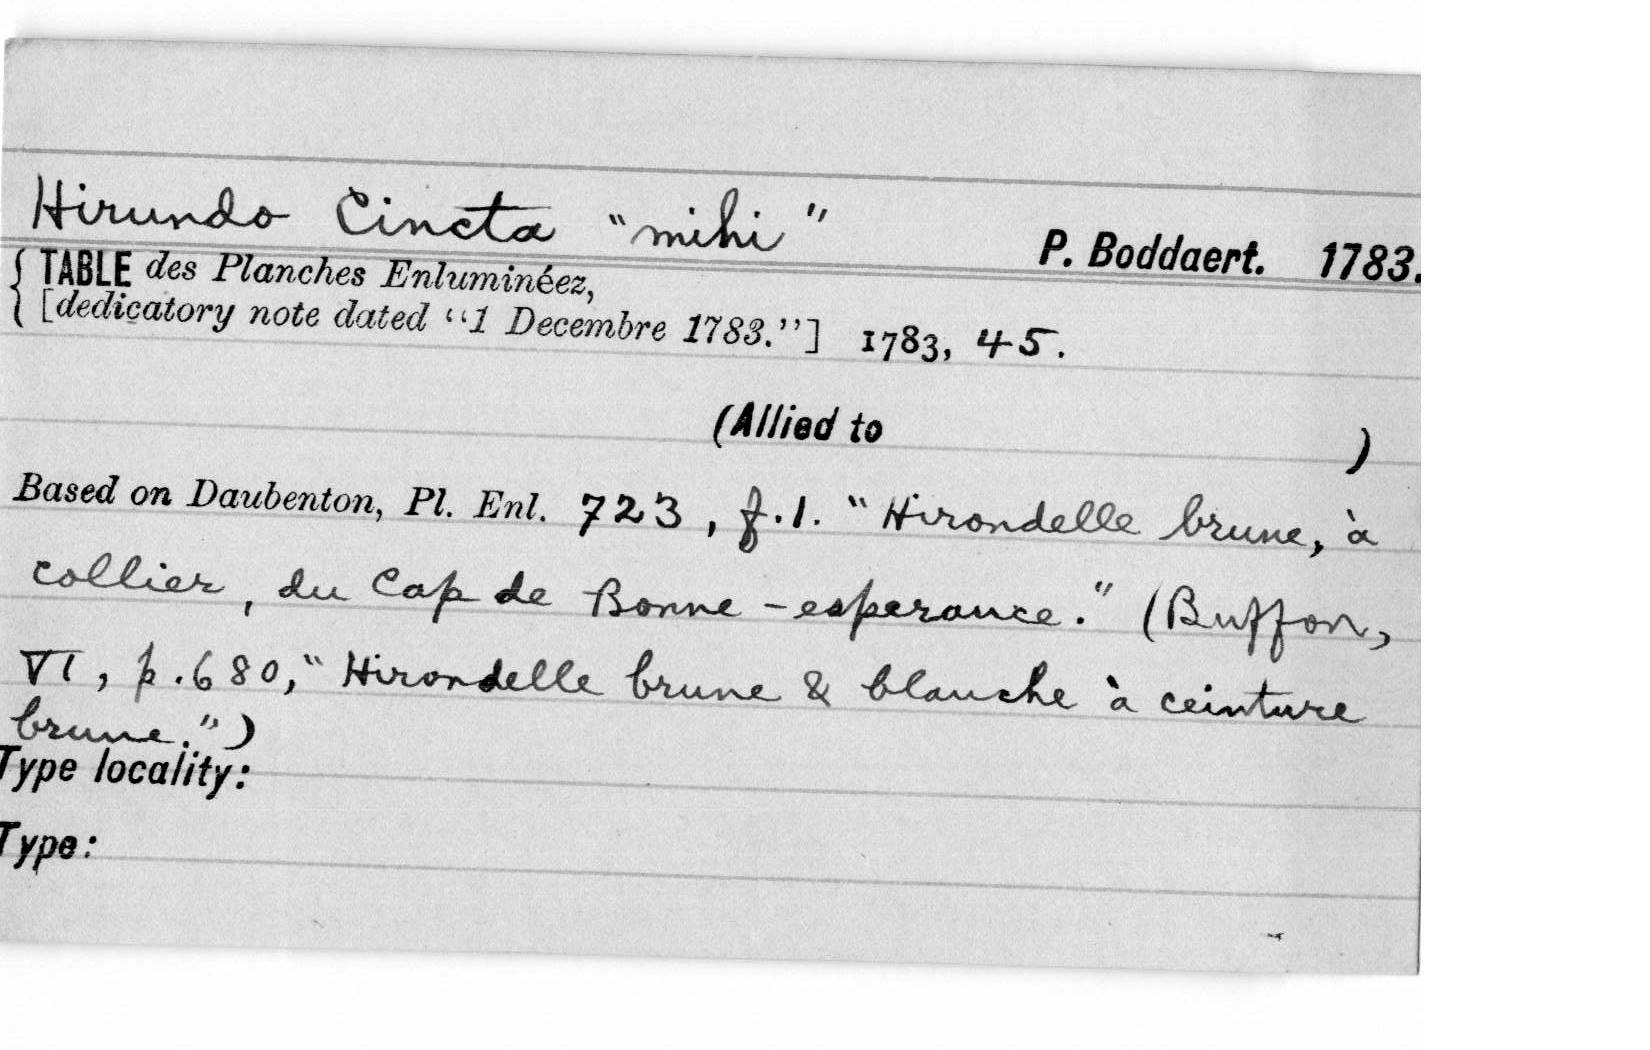 Hirundo Cincta "mihi" P. Boddaert. 1783.
TABLE des Planches Enluminéez,
[dedicatory note dated "1 Decembre 1783."] 1783, 45.
(Allied to )
Based on Daubenton, Pl. Enl. 723, f.1. "Hirondelle brune, à
collier, du Cap de Bonne-esperance." (Buffon,
VI, p.680, "Hirondelle brune & blanche à ceinture
brune.")
Type locality:
Type: